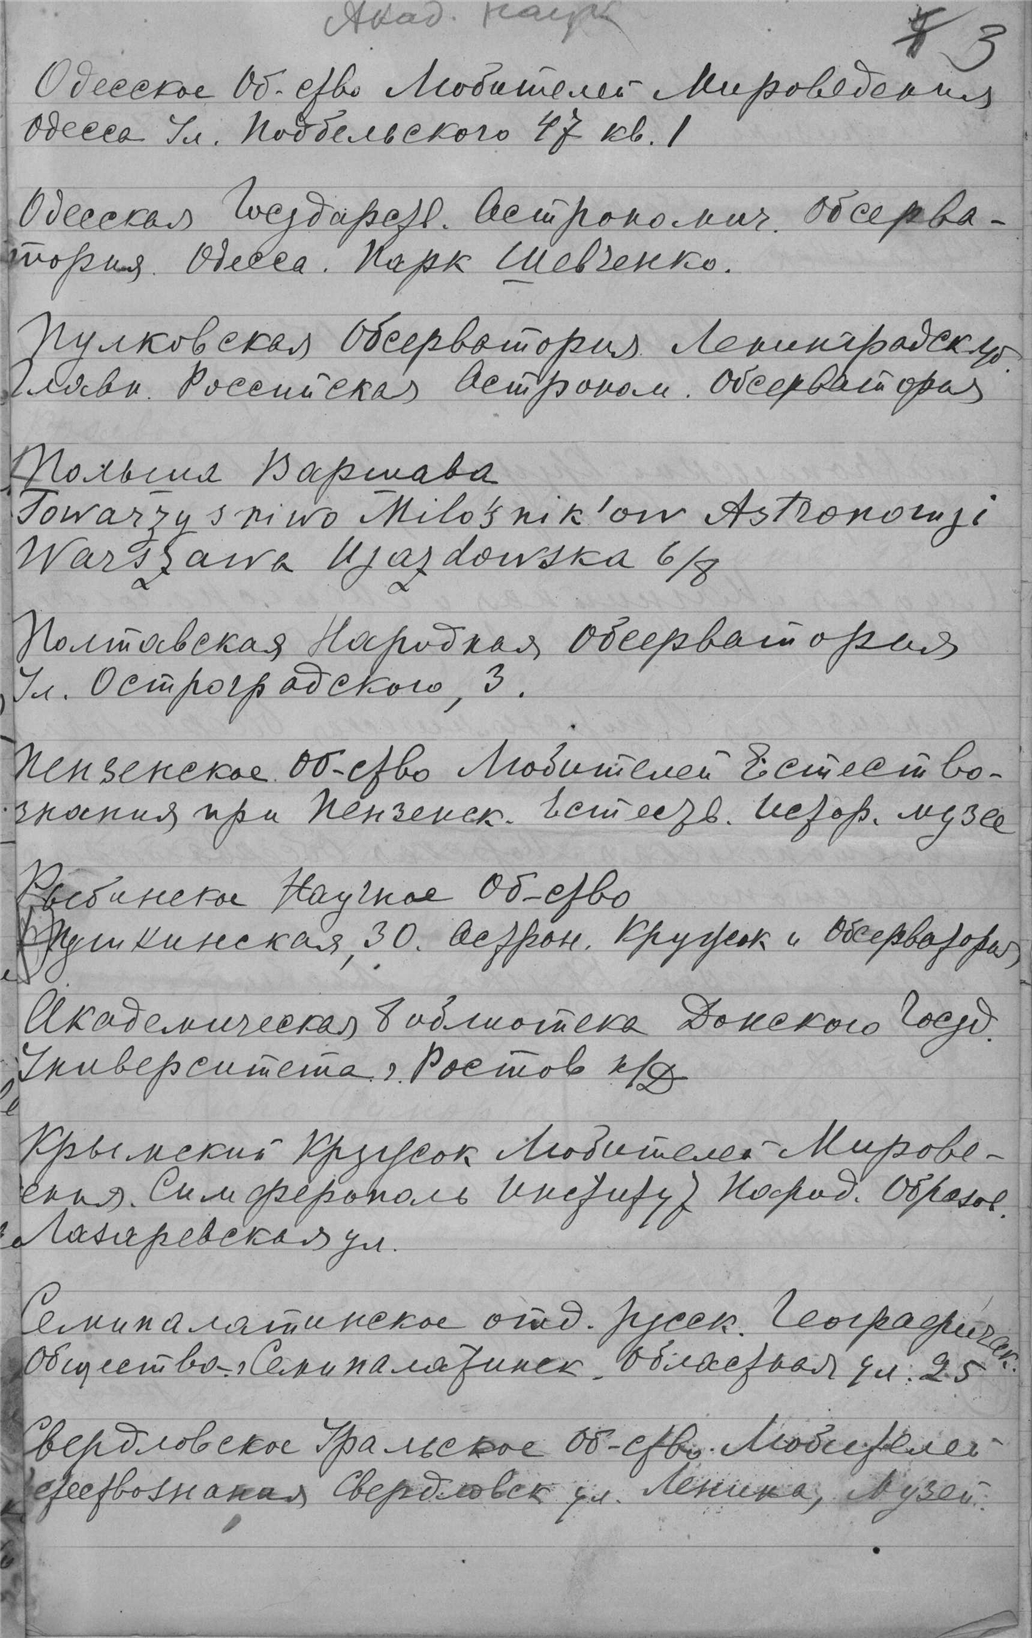 Акад. наук
3
Одесское Об-ство Любителей Мироведения
Одесса Ул. Подбельского 47 кв. 1
Одесская Государств. Астрономич. Обсерва-
тория. Одесса. Парк Шевченко.
Пулковская Обсерватория. Ленинградск. губ.
Главн. Российская Астроном. Обсерватория
Польша Варшава
Towarzystwo Miłośnik'ow Astronomji
Warszawa Ujazdowska 6/8
Полтавская Народная Обсерватория
Ул. Остроградского, 3.
Пензенское Об-ство Любителей Естество-
знания при Пензенск. Естеств. Истор. музее
Рыбинское Научное Об-ство
Пушкинская, 30. Астрон. Кружок и Обсерватория
Академическая Библиотека Донского Госуд.
Университета г. Ростов н/Д
Крымский Кружок Любителей Мирове-
ения. Симферополь Институт Народ. Образов.
Лазаревская ул.
Семипалатинское отд. русск. Географическ.
Общества г. Семипалатинск. Областная ул. 25
Свердловское Уральское Об-ство Любителей
Естествознания Свердловск ул. Ленина, Музей.